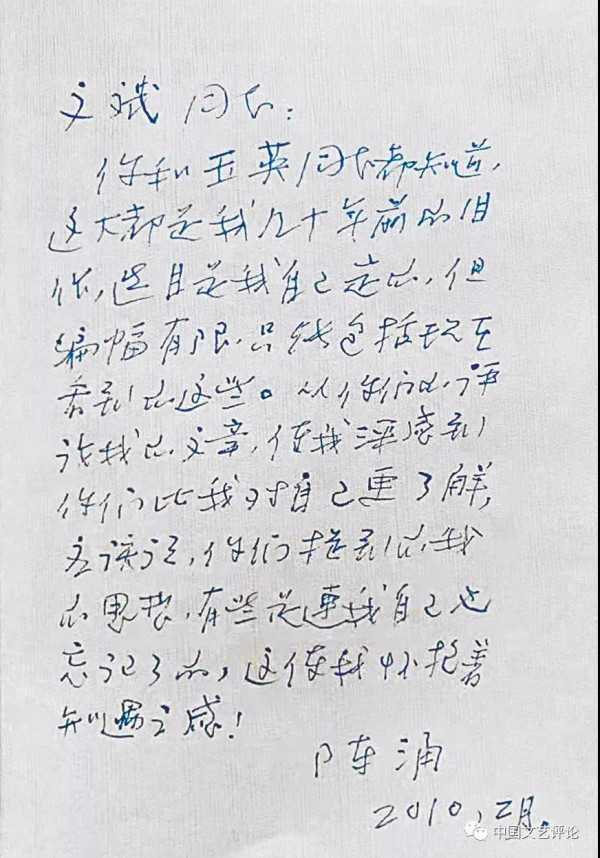 文斌同志：
你和玉英同志都知道，
这大都是我几十年前的旧
作，选目是我自己定的，但
篇幅有限，只能包括现在
看到的这些。从你们的评
论我的文章，使我深感到
你们比我对自己更了解，
应该说，你们提到的我
的思想，有些是连我自己也
忘记了的，这使我怀抱着
知遇之感！
陈涌
2010，2月。
中国文艺评论